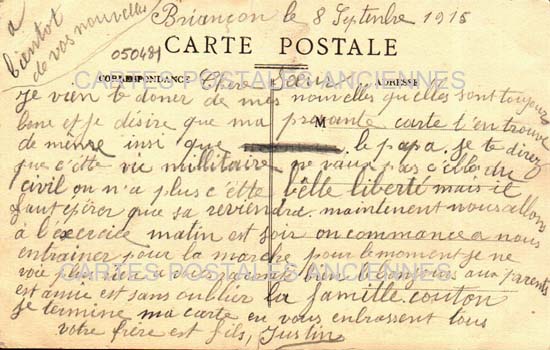 a
bientot
de vos nouvelles
Briançon le 8 Septembre 1915
050481
CARTE POSTALE
CORRESPONDANCE
ADRESSE
CARTES POSTALES ANCIENNES
Chere Sœur
je vien te doner de mes nouvelles qu'elles sont toujours
bone et je désire que ma presante carte t'en trouve
M
de mêmre insi que le papa. je te direz
que c'ette vie millitaire ne vaux pas c'elle du
civil on n'a plus c'ette belle liberté mais il
faut épérer que sa reviendra. maintenant nous allons
à l'exercice matin est soir on commance a nous
entrainer pour la marche pour le moment je ne
voie plus rien a vous dire bien le bonjour aux parents
CARTES POSTALES ANCIENNES
est amie est sans oublier la famille couton
je termine ma carte en vous enbrassent tous
votre frère est fils, Justin